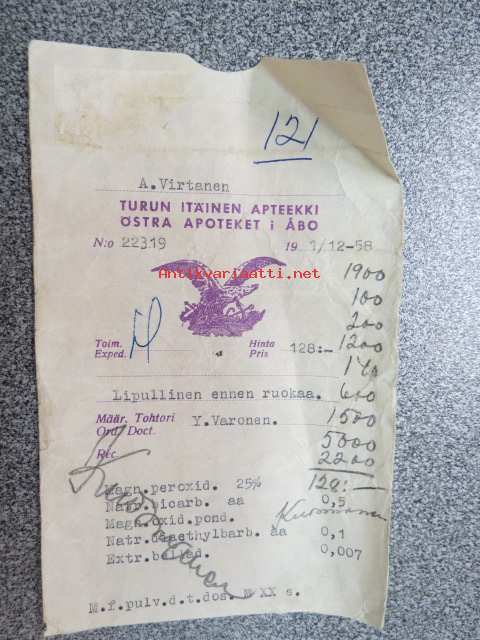 121
A.Virtanen
TURUN ITÄINEN APTEEKKI
ÖSTRA APOTEKET i ÅBO
N:o 22319 19 1/12-58
Antikvariaatti.net
1900
100
200
1200
Toim.
Exped.
Hinta
Pris 128:-
Lipullinen ennen ruokaa. 600
Määr. Tohtori
Ord. Doct. Y.Varonen. 1500
5000
2200
Rec.
120:-
Magn.peroxid. 25%
Natr.bicarb. aa 0,5
Magn.oxid.pond.
Natr.diaethylbarb. aa 0,1
Extr.bellad. 0,007
M.f.pulv.d.t.dos. N XX s.